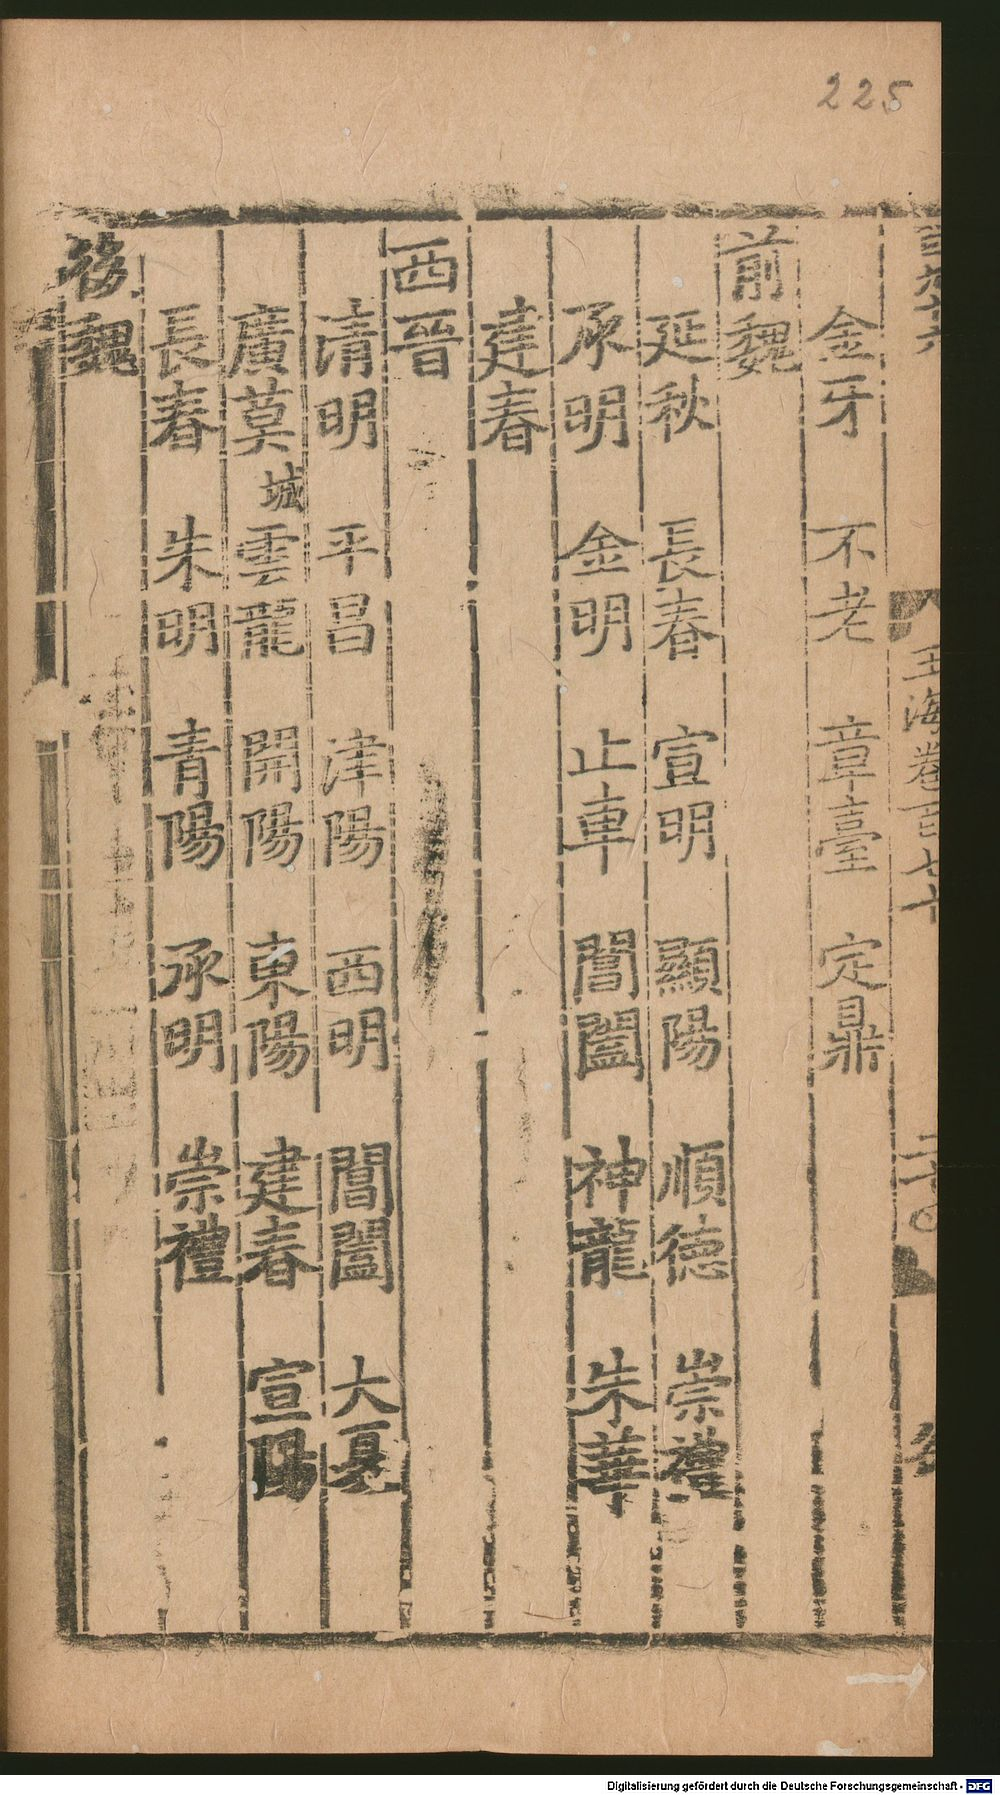 225
玉海卷百七十
金牙 不老 章臺 定鼎
前魏
延秋 長春 宣明 顯陽 順德 崇禮
承明 金明 止車 閶闔 神龍 朱華
建春
西晉
清明 平昌 津陽 西明 閶闔 大夏
廣莫 城 雲龍 開陽 東陽 建春 宣陽
長春 朱明 青陽 承明 崇禮
後魏
Digitalisierung gefördert durch die Deutsche Forschungsgemeinschaft - DFG